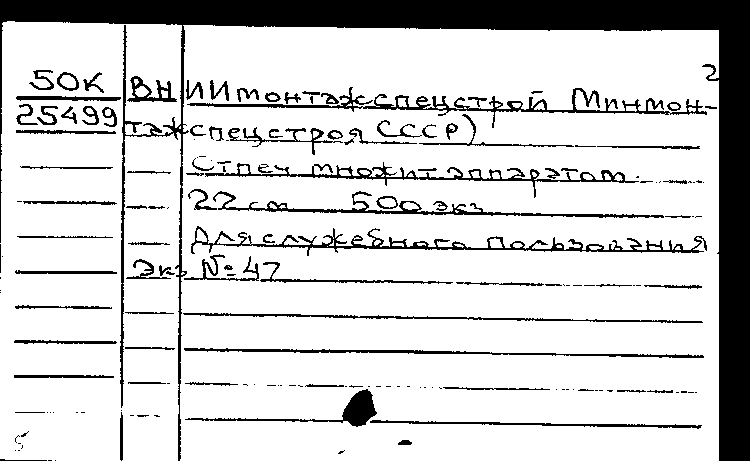 2
50К ВНИИмонтажспецстрой Минмон-
25499 тажспецстроя СССР)
Отпеч множит аппаратом.
22 см 500 экз
Для служебного пользования
Экз № 47
5